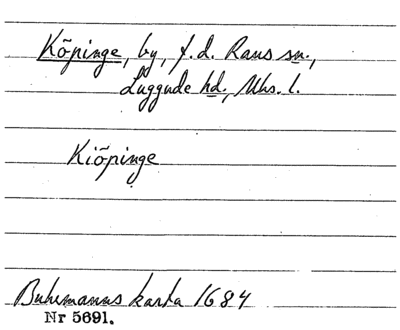 Köpinge, by, f.d. Raus sn.,
Luggude hd., Mhs. l.
Kiöpinge
Buhrmanns karta 1684
Nr 5691.